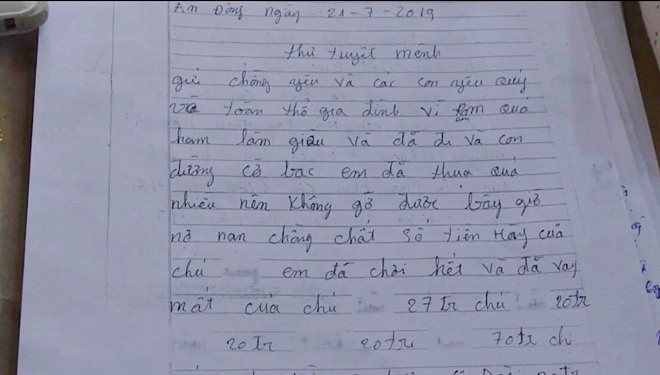 An Đồng ngày 21-7-2019
thư tuyệt mệnh
gửi chồng yêu và các con yêu quý
và toàn thể gia đình vì em quá
ham làm giàu và đã đi và con
đường cờ bạc em đã thua quá
nhiều nên không gỡ được bây giờ
nợ nan chồng chất số tiền Hãy của
chú em đã chơi hết và đã vay
mất của chú 27 tr chú 20tr
20tr 20tr 70tr ch